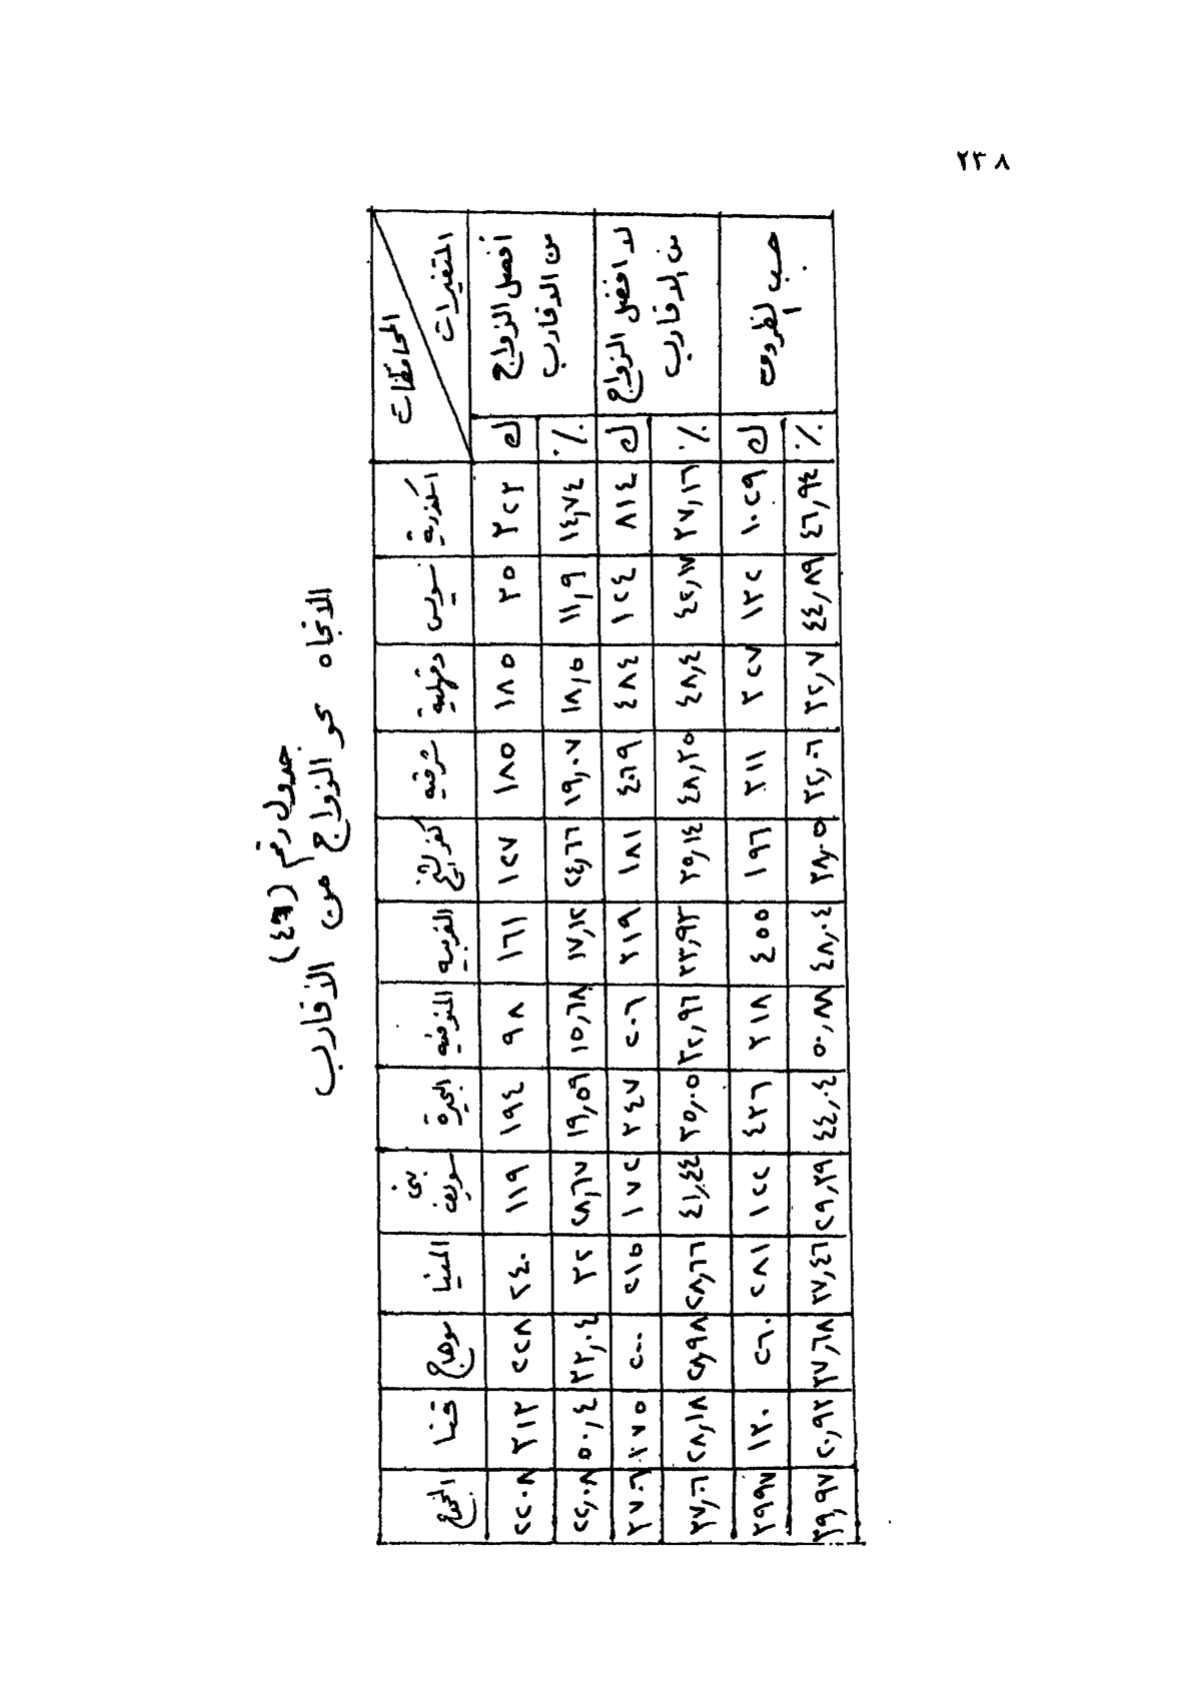 ٢٣٨
جدول رقم
الاتجاه نحو الزواج من الأقارب
المحافظات اسكندرية سويس دقهلية شرقيه كفر الشيخ الغربيه المنوفيه البحيرة بنى سويف المنيا سوهاج قنا المجموع
المتغيرات
أفضل الزواج من الاقارب
ك ٣٢٣ ٣٥ ١٨٥ ١٨٥ ١٢٧ ١٦١ ٩٨ ١٩٤ ١١٩ ٢٤٠ ٢٢٨ ٣١٣ ٢٢٠٨
٪ ١٤,٧٤ ١١,٩ ١٨,٥ ١٩,٠٧ ٢٤,٦٦ ١٧,١٢ ١٥,٦٨ ١٩,٥٩ ٢٨,٦٧ ٣٢ ٣٣,٠٤ ٥٠,٤ ٢٢,٠٨
لا افضل الزواج من الاقارب
ك ٨١٤ ١٢٤ ٤٨٤ ٤٦٩ ١٨١ ٣١٩ ٢٠٦ ٣٤٧ ١٧٢ ٢١٥ ٢٠٠ ١٧٥ ٣٧٠٦
٪ ٣٧,١٦ ٤٢,١٧ ٤٨,٤ ٤٨,٣٥ ٣٥,١٤ ٣٣,٩٣ ٣٢,٩٦ ٣٥,٠٥ ٤١,٤٤ ٢٨,٦٦ ٢٨,٩٨ ٢٨,١٨ ٣٧,٠٦
حسب الظروف
ك ١٠٢٩ ١٣٢ ٣٢٧ ٣١١ ١٩٦ ٤٥٥ ٣١٨ ٤٣٦ ١٢٢ ٢٨١ ٢٦٠ ١٣٠ ٣٩٩٧
٪ ٤٦,٩٤ ٤٤,٨٩ ٣٢,٧ ٣٢,٠٦ ٣٨,٠٥ ٤٨,٠٤ ٥٠,٨٨ ٤٤,٠٤ ٢٩,٣٩ ٣٧,٤٦ ٣٧,٦٨ ٢٠,٩٣ ٣٩,٩٧